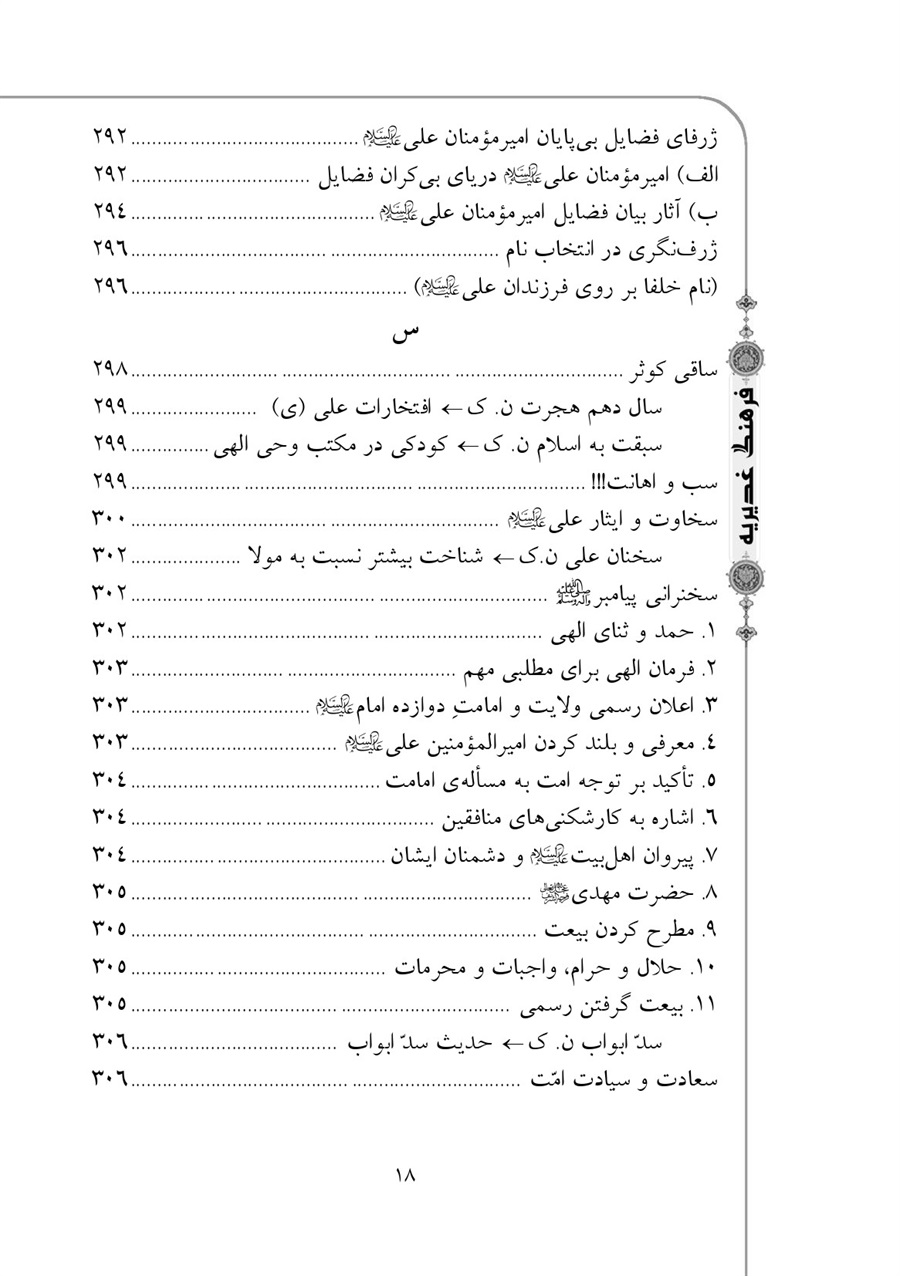 ژرفای فضایل بی‌پایان امیرمؤمنان علی علیه‌السلام ........................................... ۲۹۲
الف) امیرمؤمنان علی علیه‌السلام دریای بی‌کران فضایل .................................. ۲۹۲
ب) آثار بیان فضایل امیرمؤمنان علی علیه‌السلام .............................................. ۲۹٤
ژرف‌نگری در انتخاب نام ..................................................................... ۲۹٦
(نام خلفا بر روی فرزندان علی علیه‌السلام) .................................................... ۲۹٦
س
ساقی کوثر ............................................................................................. ۲۹۸
سال دهم هجرت ن. ک ← افتخارات علی (ی) ........................ ۲۹۹
سبقت به اسلام ن. ک ← کودکی در مکتب وحی الهی ............... ۲۹۹
سب و اهانت!!! ...................................................................................... ۲۹۹
سخاوت و ایثار علی علیه‌السلام ..................................................................... ۳۰۰
سخنان علی ن.ک ← شناخت بیشتر نسبت به مولا ..................... ۳۰۲
سخنرانی پیامبر صلی‌الله‌علیه‌وآله‌وسلم .............................................................................. ۳۰۲
۱. حمد و ثنای الهی .............................................................................. ۳۰۲
۲. فرمان الهی برای مطلبی مهم ............................................................. ۳۰۳
۳. اعلان رسمی ولایت و امامتِ دوازده امام علیه‌السلام .................................. ۳۰۳
٤. معرفی و بلند کردن امیرالمؤمنین علی علیه‌السلام ....................................... ۳۰۳
٥. تأکید بر توجه امت به مسأله‌ی امامت ............................................... ۳۰٤
٦. اشاره به کارشکنی‌های منافقین ......................................................... ۳۰٤
۷. پیروان اهل‌بیت علیه‌السلام و دشمنان ایشان ................................................ ۳۰٤
۸. حضرت مهدی عجل‌الله‌تعالی‌فرجه .......................................................................... ۳۰٥
۹. مطرح کردن بیعت ............................................................................. ۳۰٥
۱۰. حلال و حرام، واجبات و محرمات ................................................ ۳۰٥
۱۱. بیعت گرفتن رسمی ....................................................................... ۳۰٥
سدّ ابواب ن. ک ← حدیث سدّ ابواب ....................................... ۳۰٦
سعادت و سیادت امّت ......................................................................... ۳۰٦
فرهنگ غدیریه
۱۸